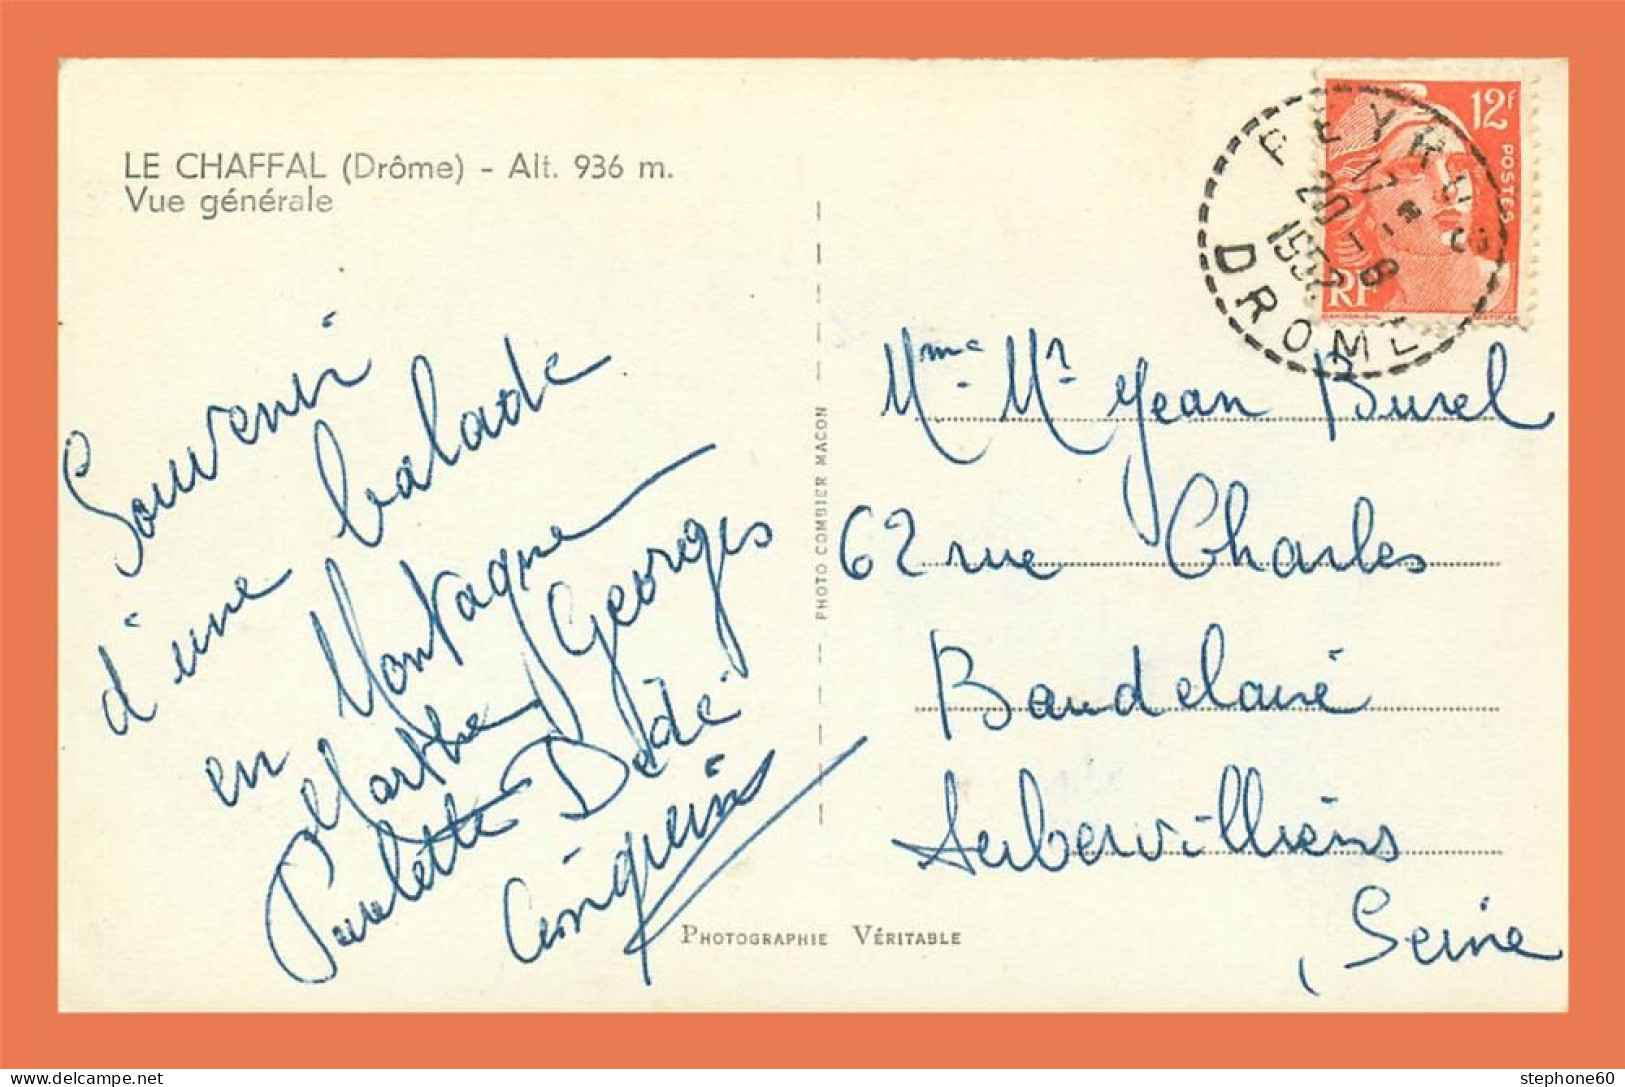 LE CHAFFAL (Drôme) - Alt. 936 m.
Vue générale
Souvenir
d'une balade
en Montagne
Marthe Georges
Paulette Dédé
PHOTOGRAPHIE VÉRITABLE
PHOTO COMBIER MACON
12F
POSTES
RF
PEYRUS
17
20 - 8
1952
DROME
Mme. Mr Jean Burel
62 rue Charles
Baudelaire
Aubervilliers
Seine
stephone60